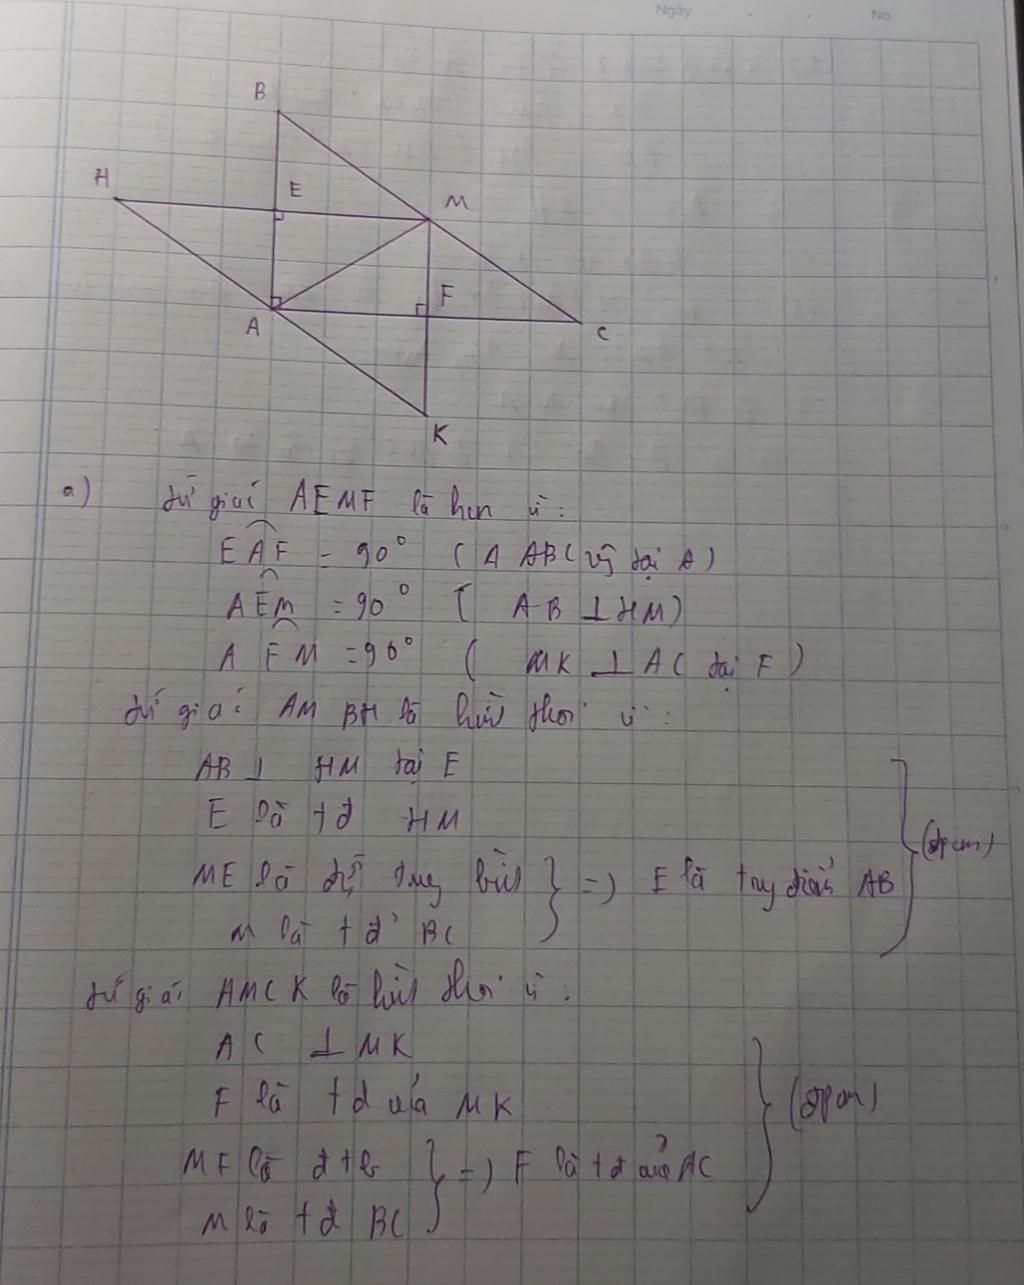 Ngày . . No.
B
H
E
M
F
A
C
K
a) Tứ giác AEMF là hcn vì :
EAF = 90° ( Δ ABC vg tại A)
AEM = 90° ( AB ⊥ HM)
AFM = 90° ( MK ⊥ AC tại F )
Tứ giác AMBH là hình thoi vì :
AB ⊥ HM tại E
E là tđ HM
ME là đg tung bình } => E là trg điểm AB } (đpcm)
M là tđ BC
Tứ giác AMCK là hình thoi vì :
AC ⊥ MK
F là tđ của MK } (đpcm)
MF là đtb } => F là tđ của AC
M là tđ BC